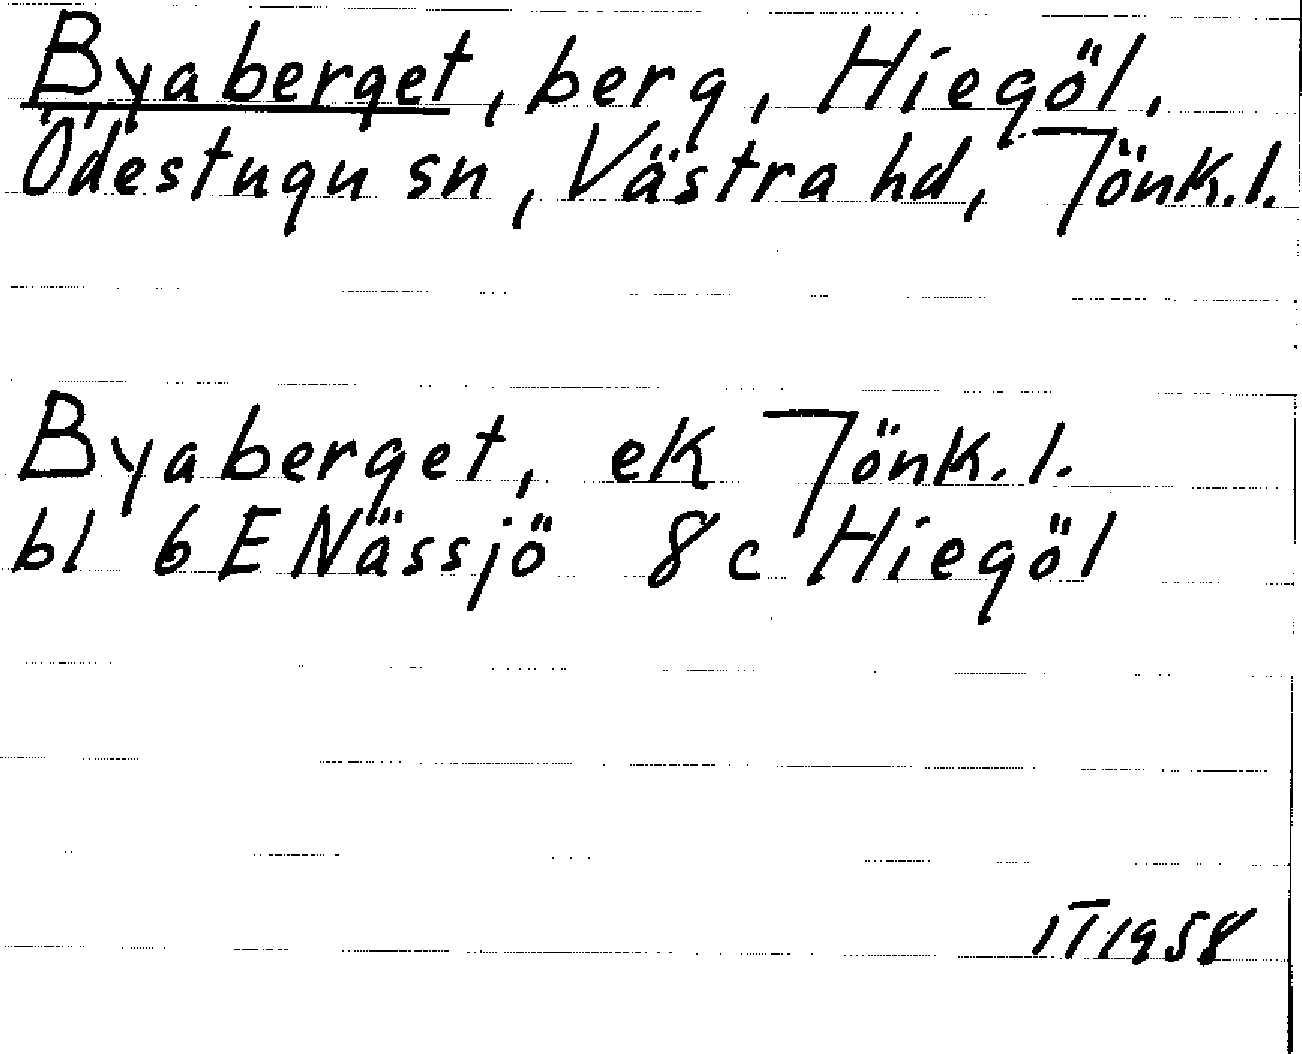 Byaberget, berg, Hiegöl,
Ödestugu sn, Västra hd, Jönk.l.
Byaberget, ek Jönk.l.
bl 6E Nässjö 8c Hiegöl
IT1958